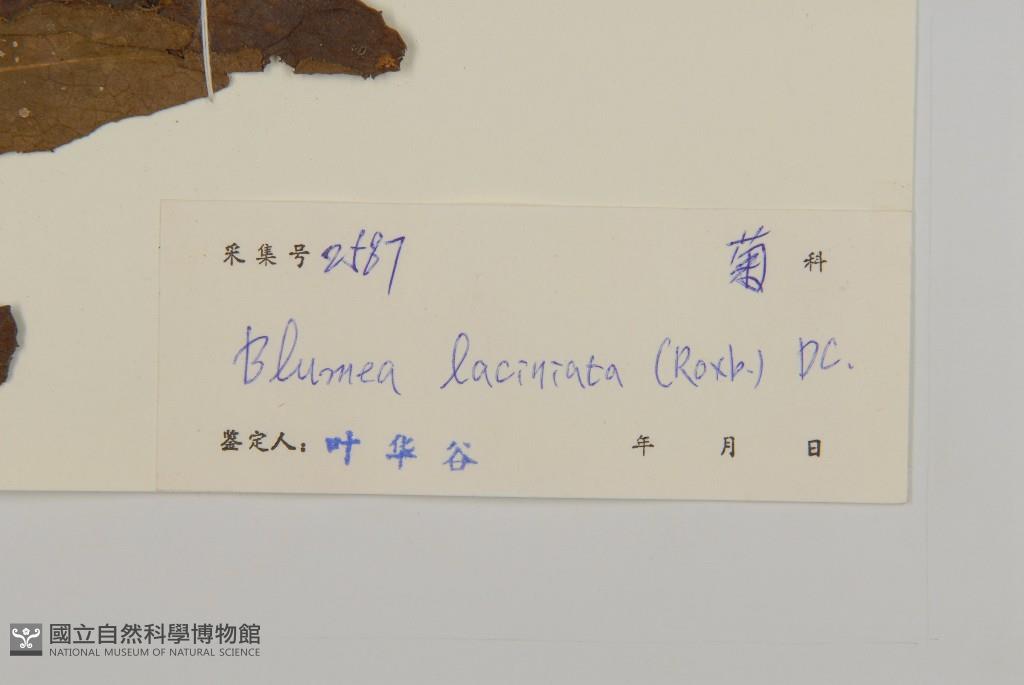 采集号 2587 菊 科
Blumea laciniata (Roxb.) DC.
鉴定人: 叶华谷 年 月 日
國立自然科學博物館
NATIONAL MUSEUM OF NATURAL SCIENCE